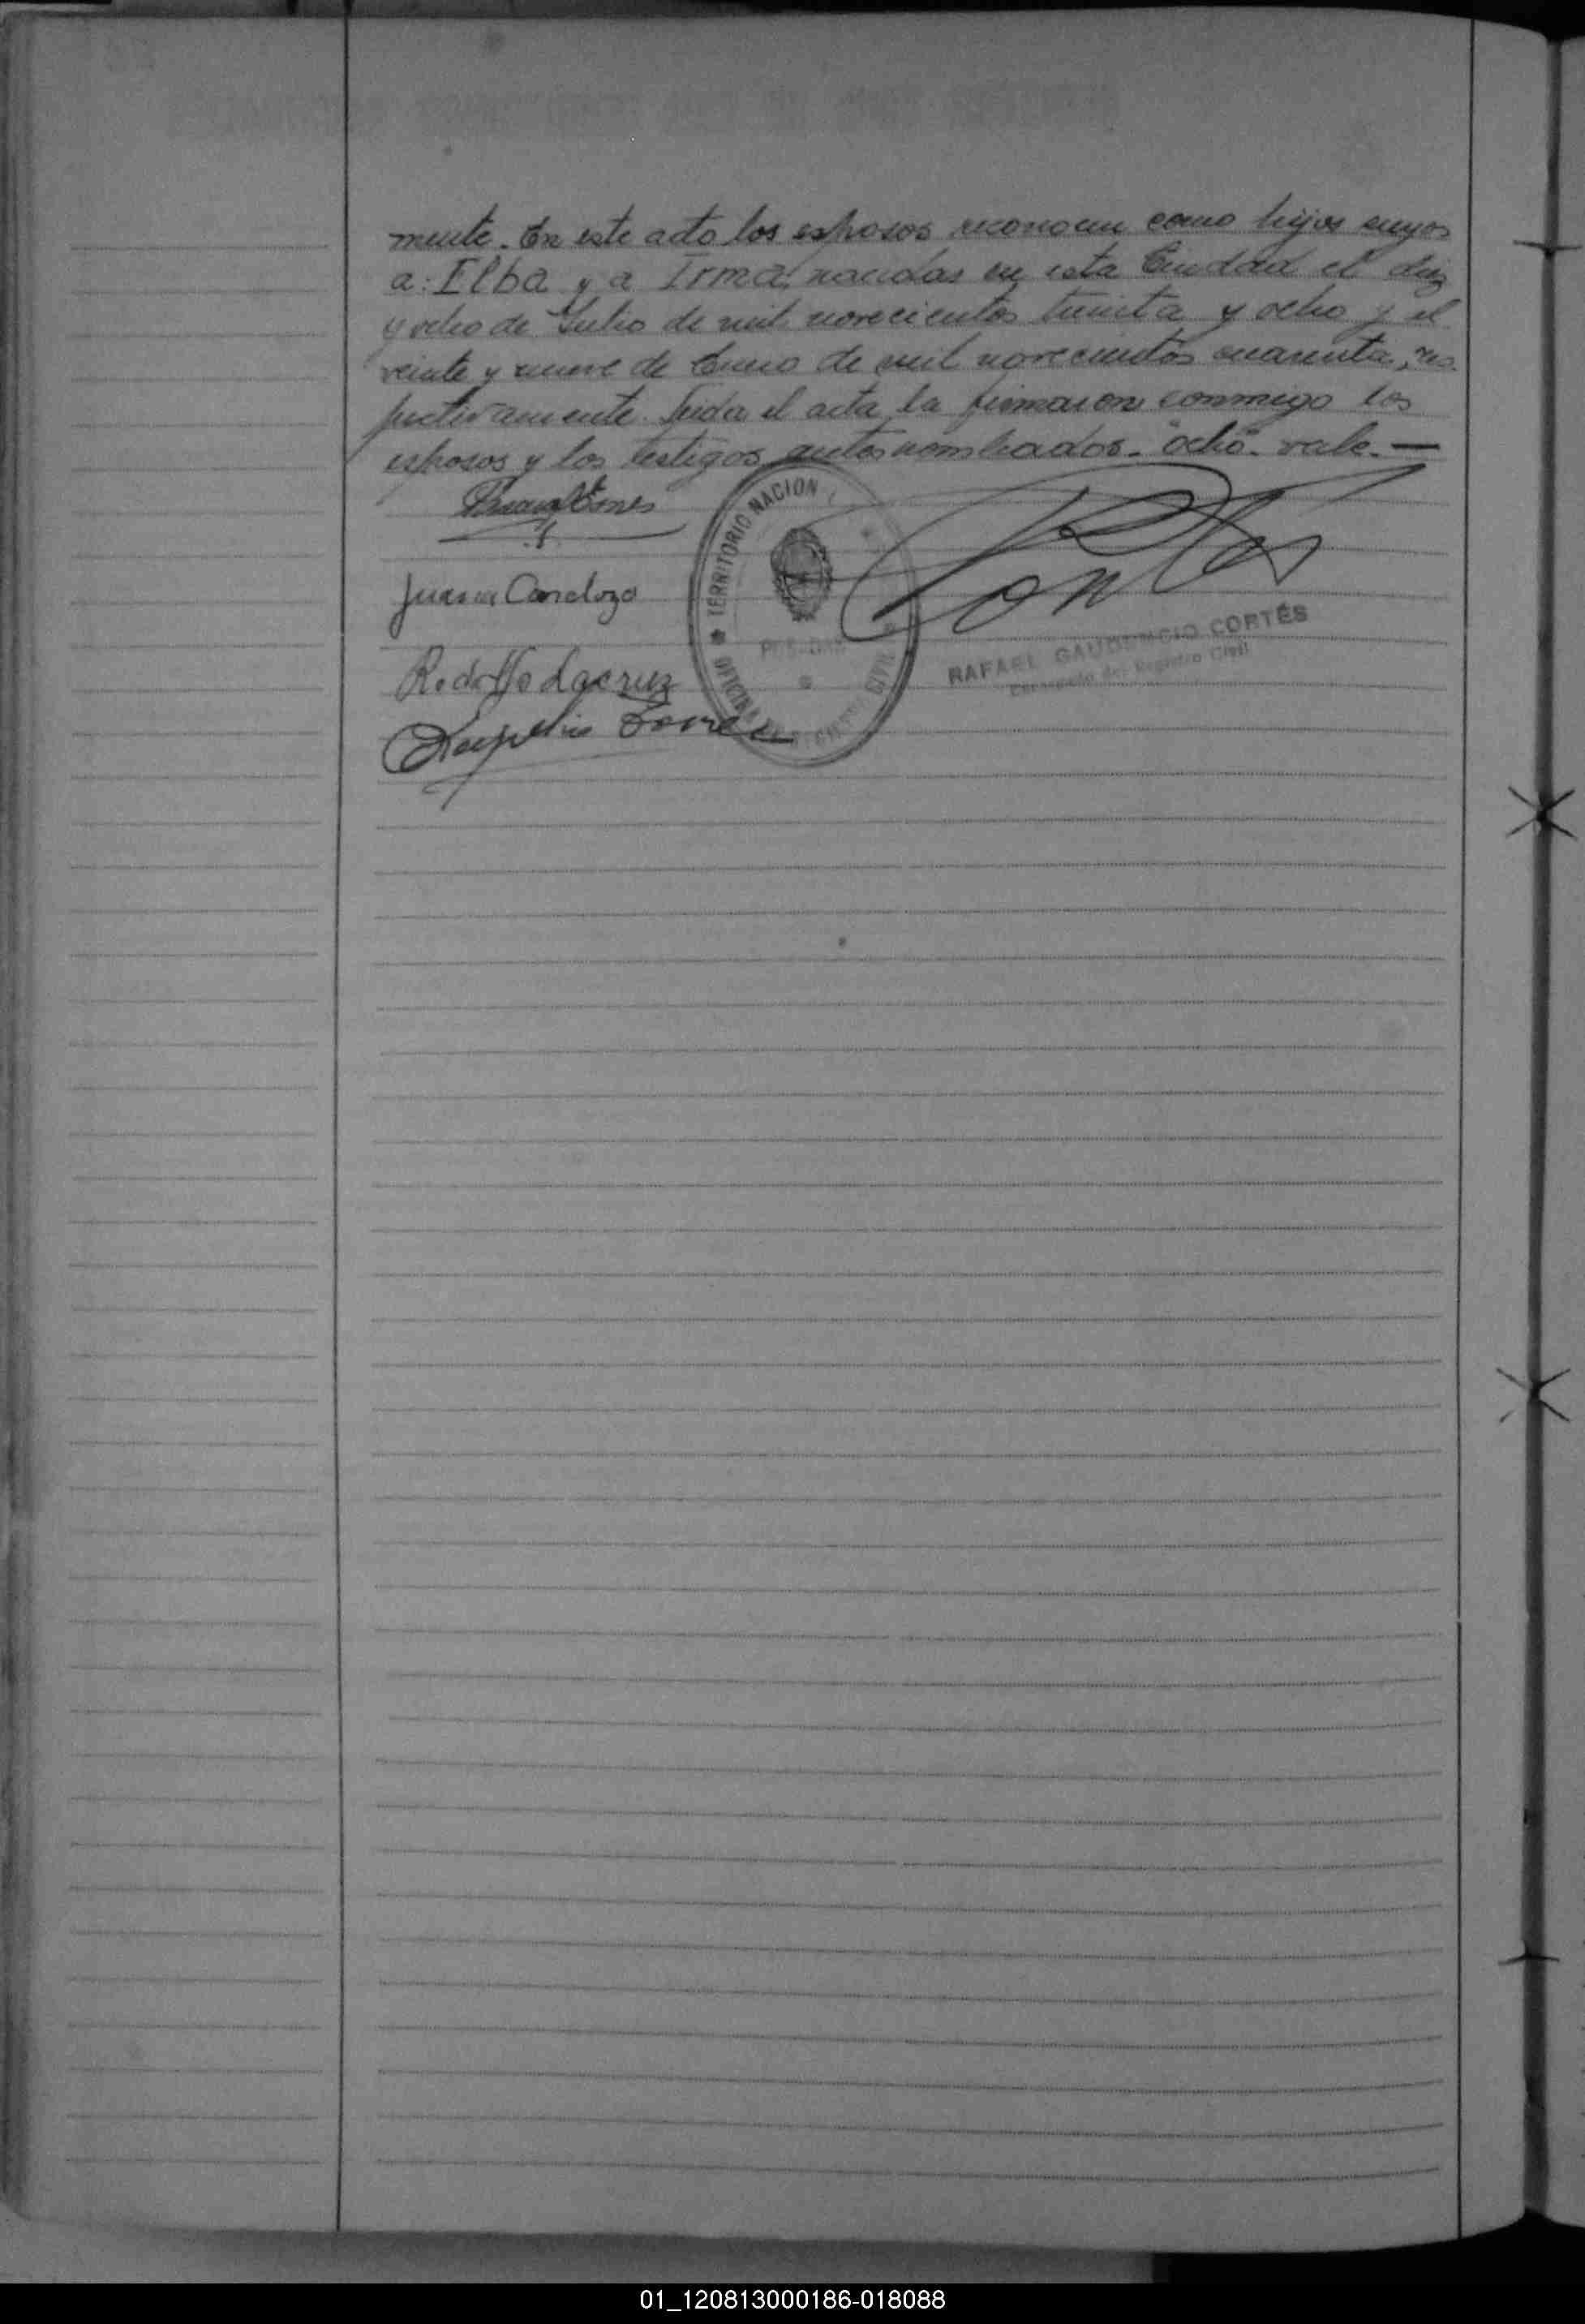 mente. En este acto los esposos reconocen como hijos suyos
a: Elba y a Irma, nacidas en esta Ciudad el diez
y ocho de Julio de mil novecientos treinta y ocho y el
veinte y nueve de Enero de mil novecientos cuarenta, res-
pectivamente. Leida el acta la firmaron conmigo los
esposos y los testigos antes nombrados. "ocho". vale. —
TERRITORIO NACION
Juana Cardozo
Cortes
POSADAS
RAFAEL GAUDENCIO CORTÉS
Encargado del Registro Civil
Rodolfo Lacruz
OFICINA CIVIL
01_120813000186-018088